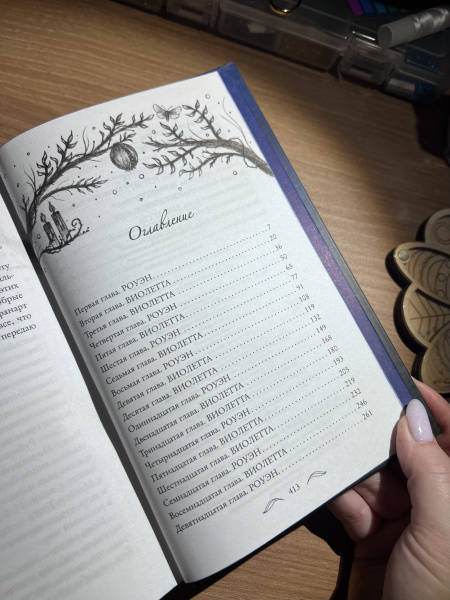 этих
се, что
передаю
Оглавление
Первая глава, РОУЭН 7
Вторая глава, ВИОЛЕТТА 22
Третья глава, ВИОЛЕТТА 36
Четвертая глава, РОУЭН 50
Пятая глава, ВИОЛЕТТА 65
Шестая глава, РОУЭН 77
Седьмая глава, ВИОЛЕТТА 91
Восьмая глава, РОУЭН 108
Девятая глава, ВИОЛЕТТА 119
Десятая глава, ВИОЛЕТТА 132
Одиннадцатая глава, РОУЭН 149
Двенадцатая глава, ВИОЛЕТТА 168
Тринадцатая глава, ВИОЛЕТТА 182
Четырнадцатая глава, РОУЭН 193
Пятнадцатая глава, ВИОЛЕТТА 205
Шестнадцатая глава, ВИОЛЕТТА 219
Семнадцатая глава, РОУЭН 232
Восемнадцатая глава, ВИОЛЕТТА 246
Девятнадцатая глава, РОУЭН 261
413